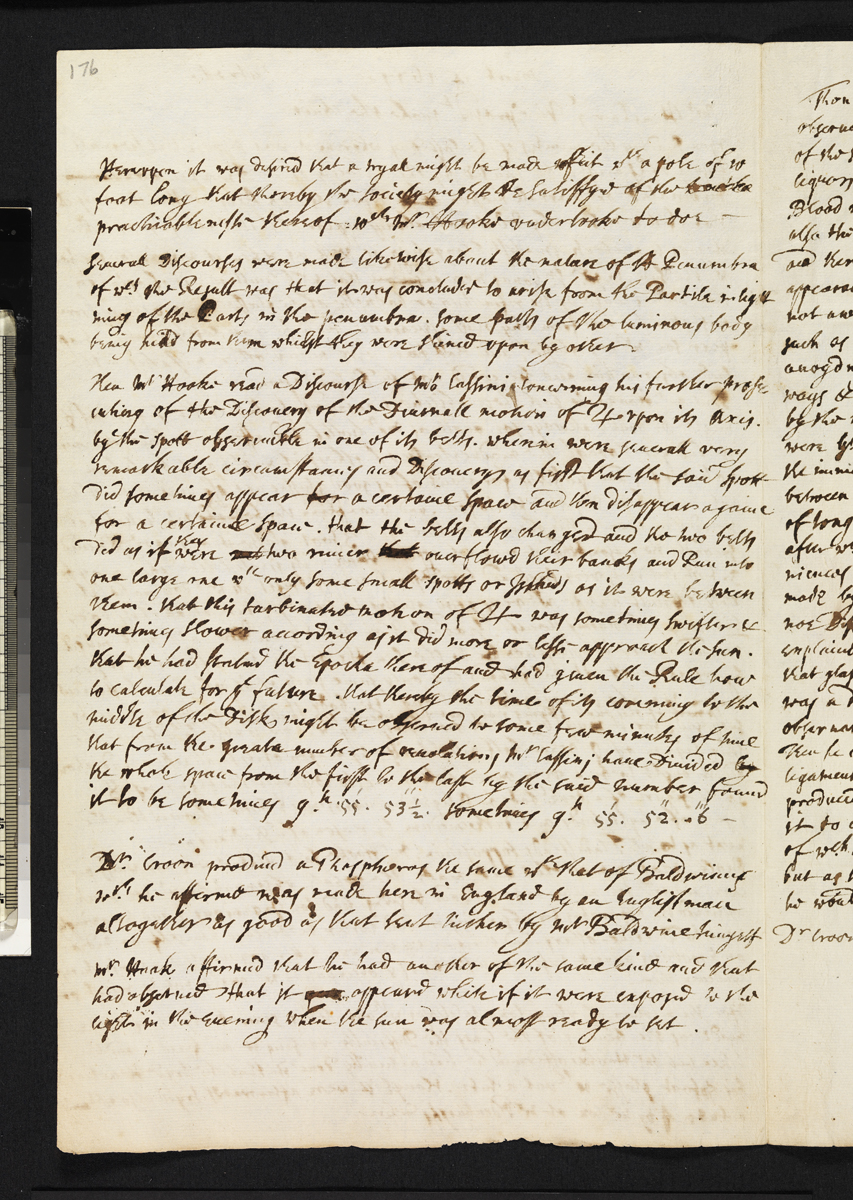 176
Hereupon it was desired that a tryall might be made of it wth a pole of 10
foot long that thereby the society might be satisfyed of the
practicableness thereof: wch Mr. Hooke undertooke to doe
Severall Discourses were made likewise about the nature of the Penumbra
of wch the Result was that it was concluded to arise from the Partiall inligh
ning of the Parts in the penumbra. some parts of the luminous body
being hid from them whilst they were shined upon by other
Then Mr Hooke read a Discourse of Mr Cassini concerning his further prose
cuting of the Discovery of the Diurnall motion of ♃ upon its Axis.
by the spott observable in one of its belts. wherein were severall very
remarkable circumstances and Discoverys as first that the said spott
did sometimes appear for a certaine space and then disappear againe
for a certaine space. that the belts also changed and the two belts
did as if they were two rivers overflowd their banks and Run into
one large one wth only some small spotts or Islands as it were between
them. that this turbinated motion of ♃ was sometimes swifter &
sometimes slower according as it did more or lesse approach the sun.
that he had stated the Epocha thereof and had given the Rule how
to calculate for ye future. that thereby the time of its comming to the
middle of the Disk might be observed to some few minutes of time
that from the greate number of revolutions Mr Cassini have Divided
the whole space from the first to the last by the said number found
it to be sometimes 9.h 55. 53½. sometimes 9.h 55. 52. 6
Dr. Croon produced a Phosphorus the same wth that of Baldwines
wch he affirmed was made here in England by an English man
altogether as good as that sent hither by Mr Baldwine himself
Mr. Hook affirmed that he had another of the same kind and that
had observed that it appeard white if it were exposed to the
light in the evening when the sun was almost ready to set.
observ
of the
liquors
Blood
also the
and ther
appeara
not
such as
ways
by the
were
between
of long
made by
that
was a
observat
produced
it to
of wch
but as
he woul
Dr Croon